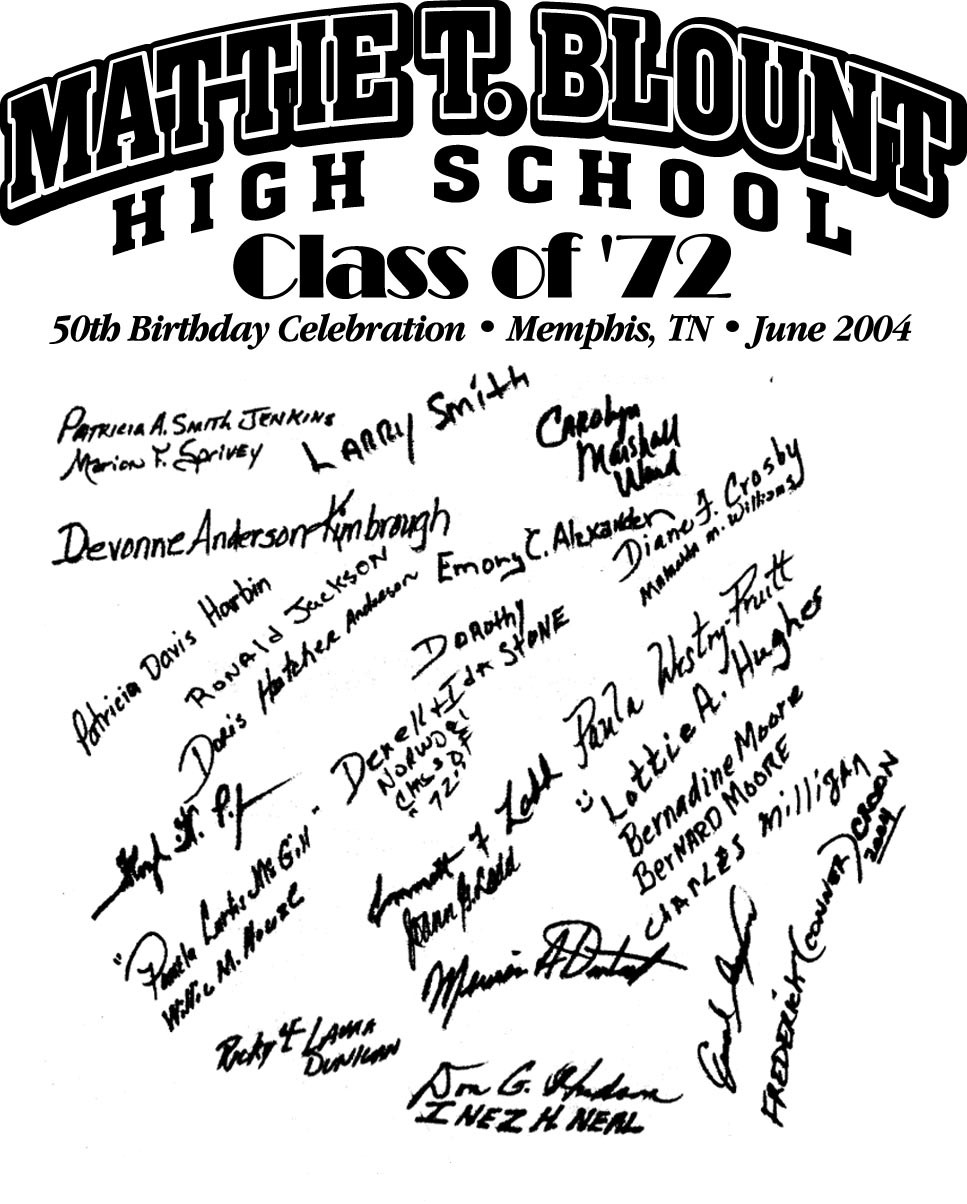 MATTIE T. BLOUNT
HIGH SCHOOL
Class of '72
50th Birthday Celebration • Memphis, TN • June 2004
PATRICIA A. SMITH JENKINS
Marion Y. Spivey
LARRY Smith
CAROlyn
Marshall
Ward
Devonne Anderson-Kimbrough
Emory C. Alexander
Diane F. Crosby
M. Williams
Patricia Davis Harbin
RONAld JACKSON
Doris Hatcher Anderson
DOROthy
Derell + Ida STONE
NORWOOd
Class OF
72
Paula Westry-Pruitt
Lottie A. Hughes
Bernadine Moore
BerNARD MOORE
CHARLES Milligan
"Pamela McGill"
Willie M.
Emmett F Ladd
JoAnn B. Ladd
FREDERICK (CONNER) CROON
2004
Ricky & LAURA
DUNICAN
Don G. Hudson
INEZ H. NEAL